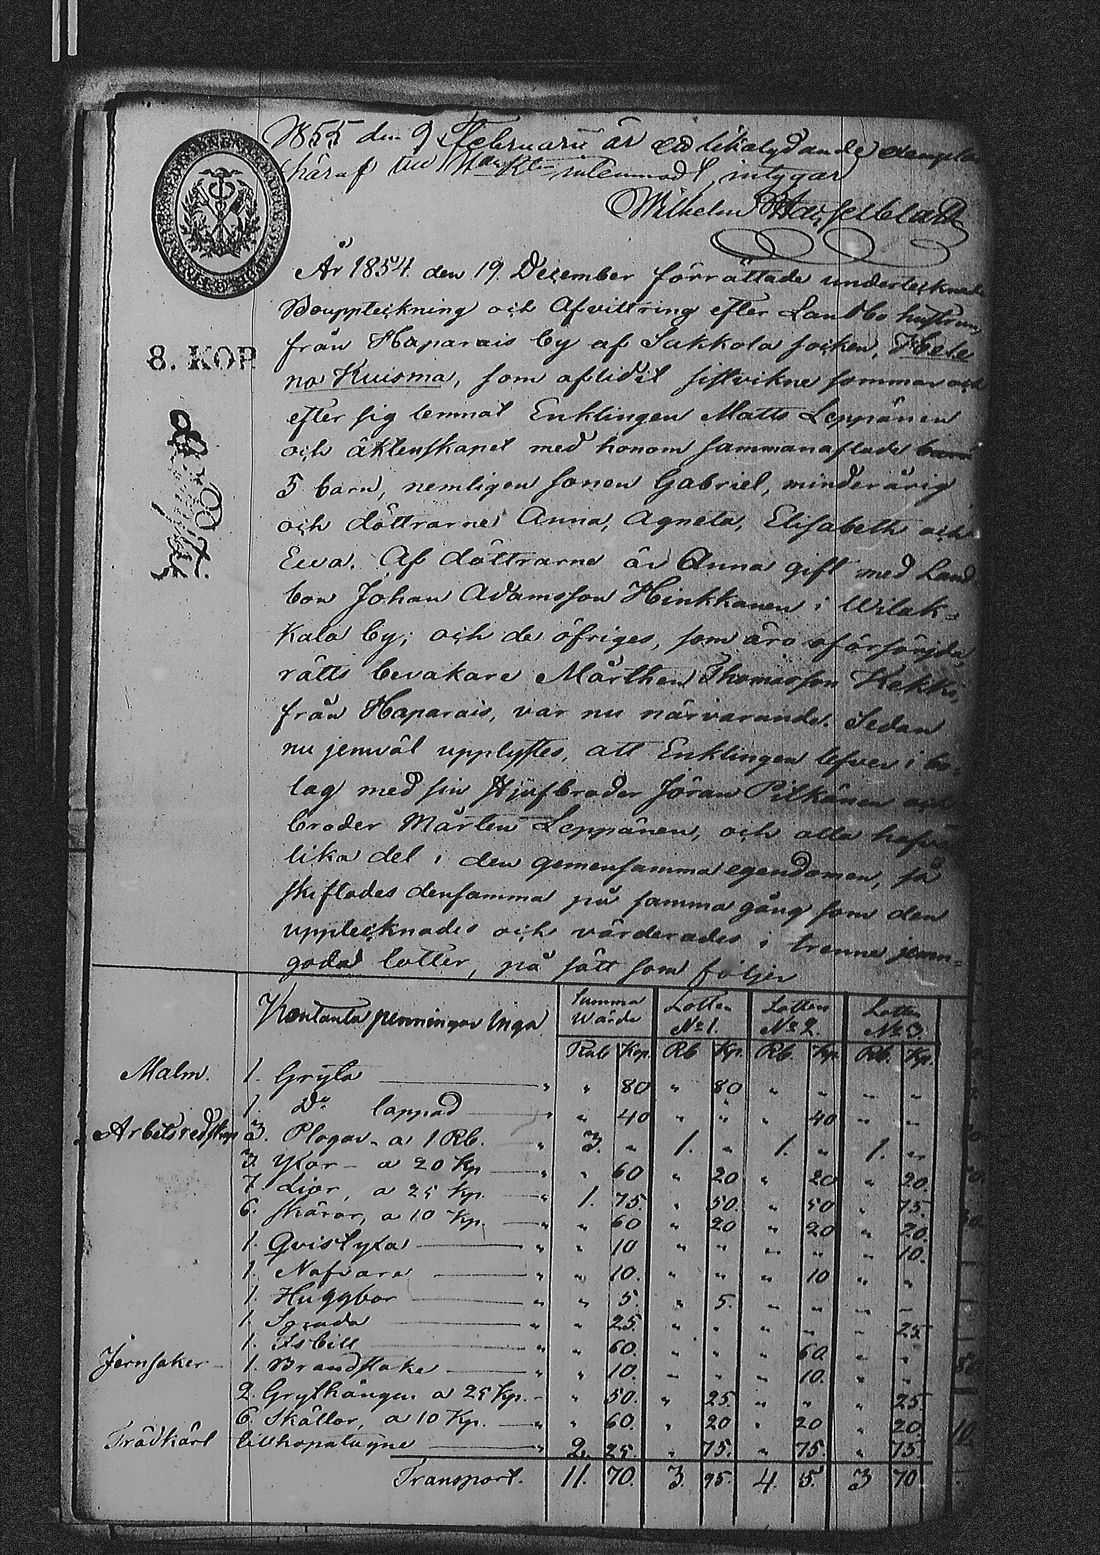 1855 den 9 Februarii är ett likalydande exemplar
häraf till intemnadt intygar
Wilhelm Hasselblatt
År 1854 den 19 December förrättade undertecknade
Bouppteckning och Afvittring efter Landbo hustrun
8. KOP
från Haparais by af Sakkola socken, Hele
na Kuisma, som aflidit sistvikne sommar och
efter sig lemnat Enklingen Matts Leppänen
och äktenskapet med honom sammanaflade
5 barn, nemligen sonen Gabriel, minderårig
och döttrarne Anna, Agneta, Elisabeth och
Ewa. Af döttrarne är Anna gift med Land
bon Johan Adamsson Hinkkanen i Wilak-
kala by; och de öfriges, som äro oförsörjda,
rätts bevakare Mårthen Thomasson Kekki,
från Haparais, var nu närvarande. Sedan
nu jemväl upplystes, att Enklingen lefver i bo-
lag med sin Styfbroder Jöran Pitkänen och
broder Mårten Leppänen, och alla hafva
lika del i den gemensamma egendomen, så
skiftades densamma på samma gång som den
upptecknades och värderades i trenne jemn-
goda lotter, på sätt som följer
Kontanta penningar inga Summa Wärde Lotten No 1. Lotten No 2. Lotten No 3.
Rub Kop. Rb Kp. Rb. Kp. Rb. Kp.
Malm. 1. Gryta " " 80 " 80 " " " "
1. Do lappad " " 40 " " " 40 " "
Arbetsredskap 3. Plogar a 1 Rb. " 3. " 1. " 1. " 1. "
3. Yxor a 20 Kp " " 60 " 20 " 20 " 20.
7. Liar, a 25 Kp. " 1. 75. " 50. " 50 " 75.
6. Skäror, a 10 Kp. " " 60 " 20 " 20 " 20.
1. Qvistyxa " " 10 " " " " " 10.
1. Nafvare " " 10. " " " 10 " "
1. Huggbor " " 5. " 5. " " " "
1. " 25. " " " " " 25
1. Isbill " 60. " " " 60. " "
Jernsaker 1. Brandstake " " 10. " " " 10. " "
2. Grythängen a 25 Kp. " " 50. " 25. " " " 25.
6. Skållor, a 10 Kp. " " 60. " 20 " 20 " 20.
Trädkärl " 2. 25 " 75. " 75. " 75.
Transport. 11. 70. 3. 95. 4. 5. 3 70